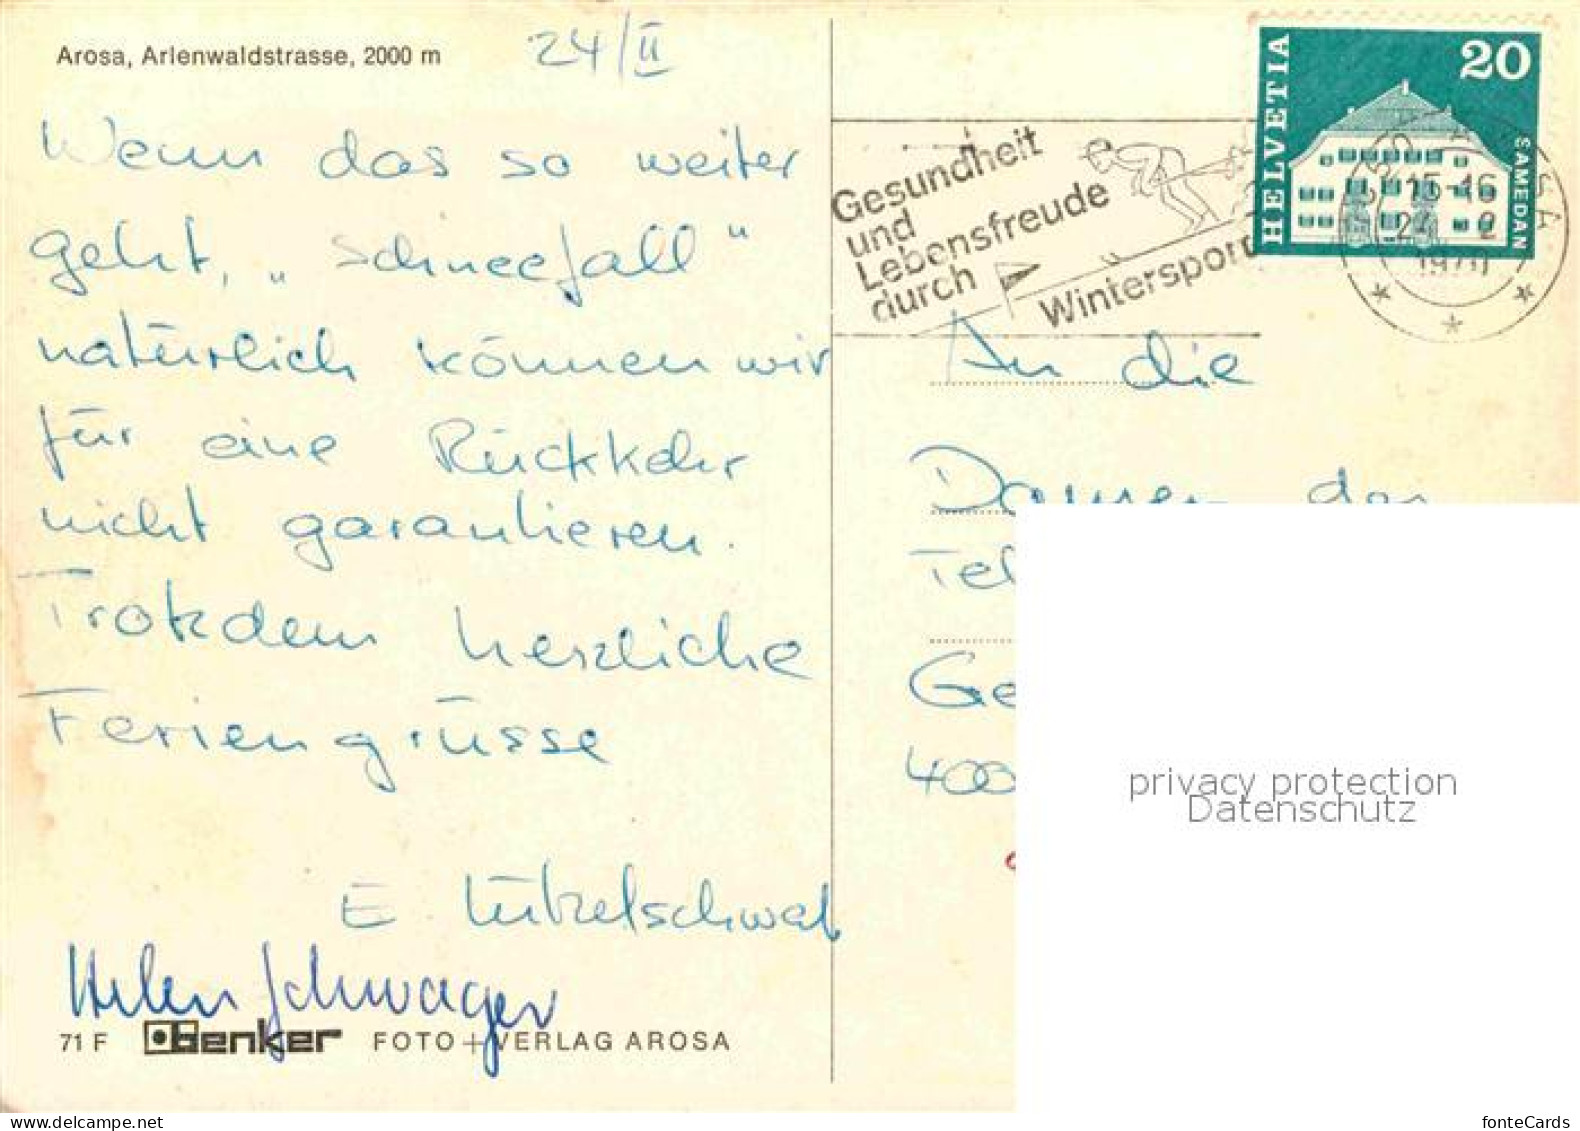 Arosa, Arlenwaldstrasse, 2000 m
24/II
Wenn das so weiter
geht, „Schneefall"
natürlich können wir
für eine Rückkehr
nicht garantieren.
Trotzdem herzliche
Feriengrüsse
E
Helen Schwager
71 F
FOTO+VERLAG AROSA
Gesundheit
und
Lebensfreude
durch
Wintersport
HELVETIA
20
SAMEDAN
15-16
24. 2
1970
An die
Damen der
Tel
Ge
400
privacy protection
Datenschutz
fonteCards